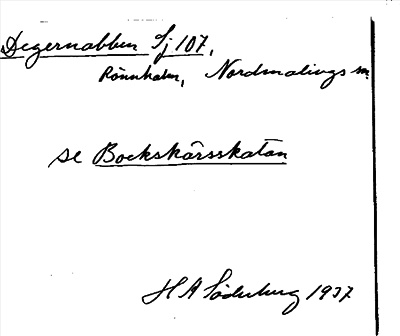 Degernabben Sj 107,
Rönnholm, Nordmalings sn
se Bockskärsskatan
H A Söderberg 1937